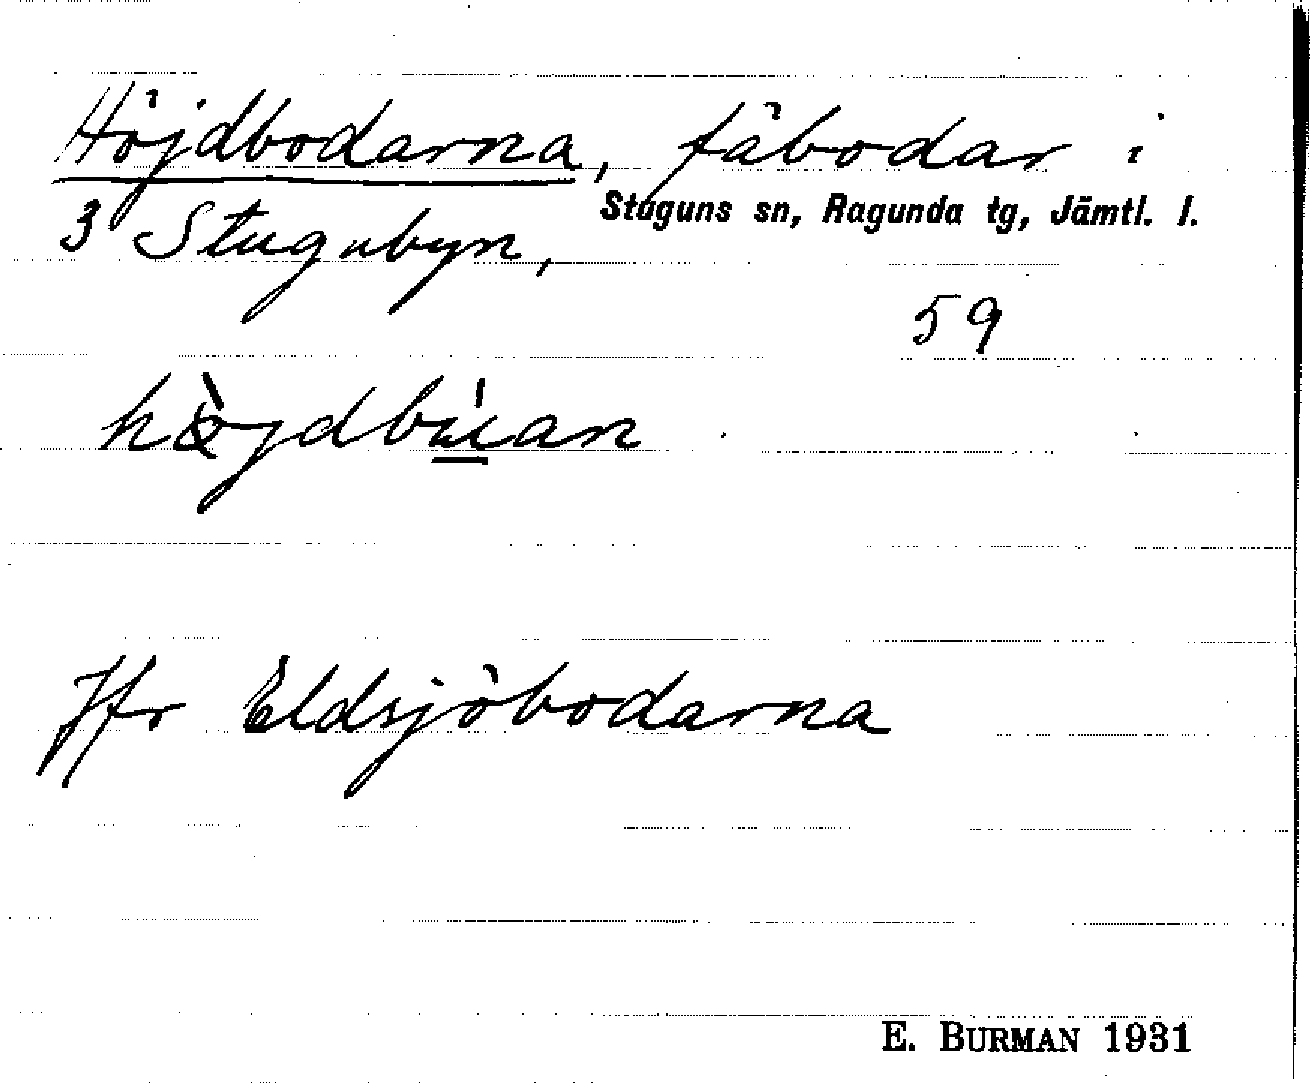 Höjdbodarna, fäbodar i
Stuguns sn, Ragunda tg, Jämtl. l.
3 Stugubyn,
59
hø̀jdbùan
Jfr Eldsjöbodarna
E. BURMAN 1931